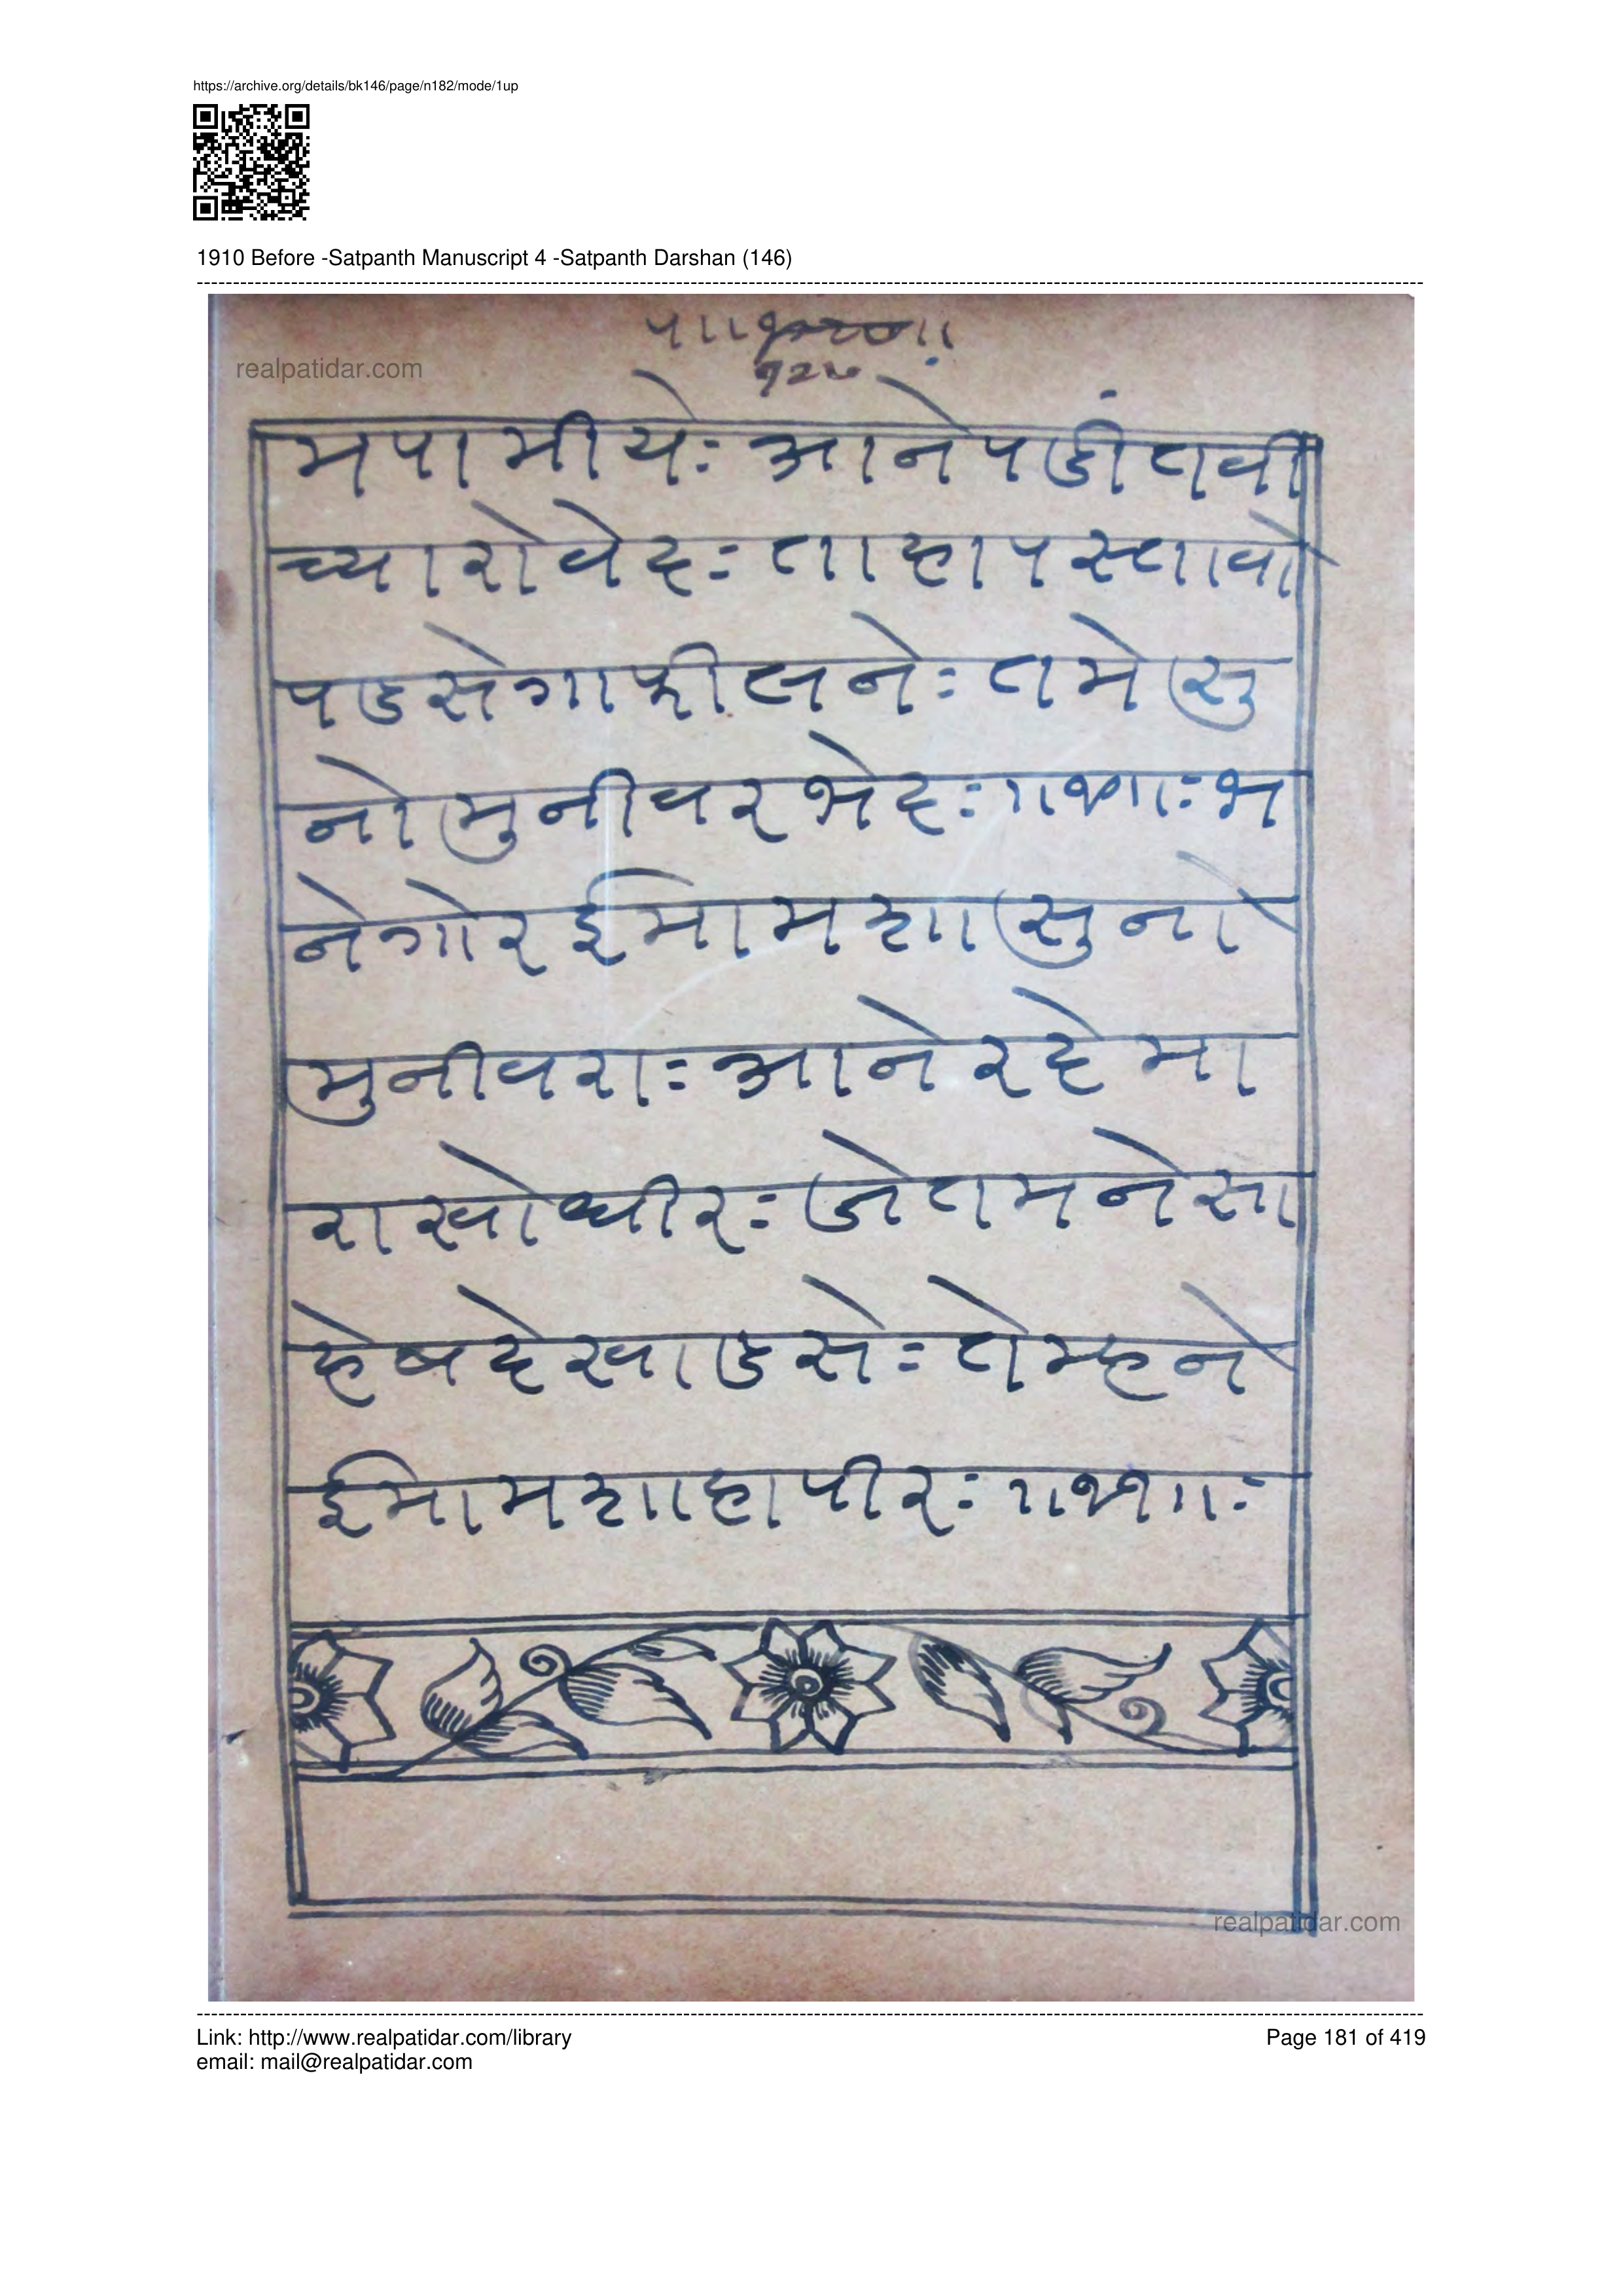 https://archive.org/details/bk146/page/n182/mode/1up
1910 Before -Satpanth Manuscript 4 -Satpanth Darshan (146)
realpatidar.com
मपामीयेः आने पडींतवी
च्यारोवेदः ताहा पस्तावो
पडसे गाफीलनेः तमे सु
नो मुनीवर भेदः ॥१०॥ः भ
ने गोर ईमामशा सुनो
मुनीवराः आने रहेमा
राखो धीरः जे तमने सा
हेब देखाडसेः ते म्हने
ईमामशाहा पीरः ॥११॥ः
realpatidar.com
Link: http://www.realpatidar.com/library
Page 181 of 419
email: mail@realpatidar.com